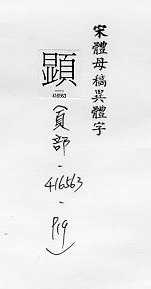 宋體母稿異體字
顕
416563
(頁部-416563-P19)